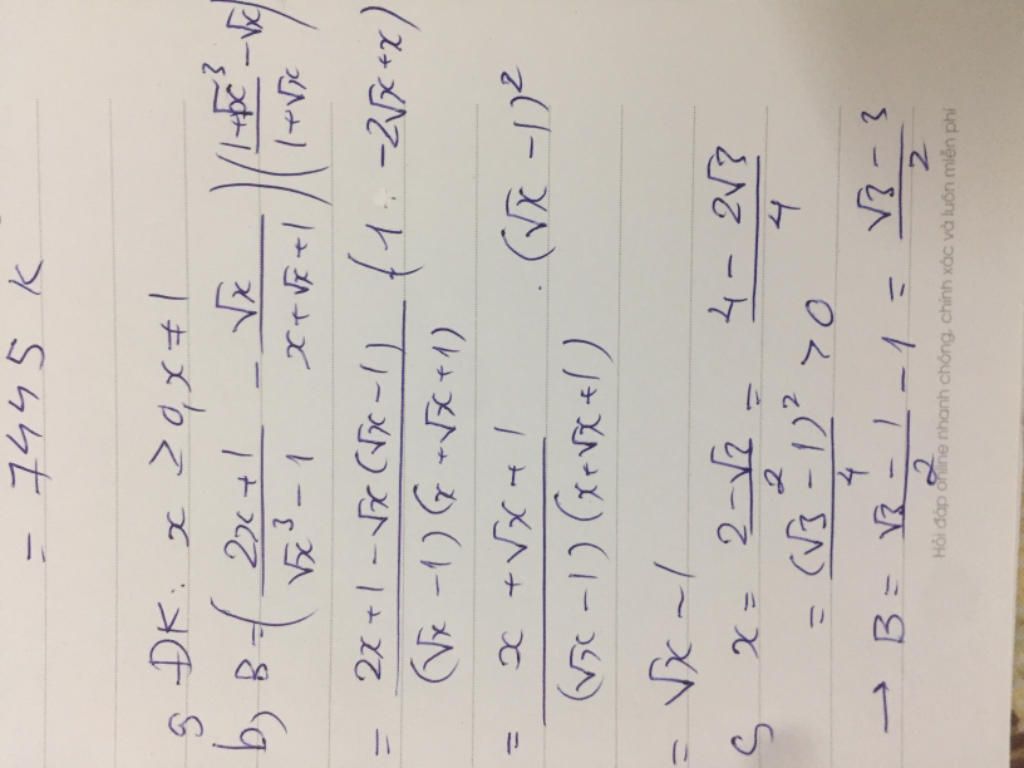 = 7445 K
a) ĐK: x ≥ 0, x ≠ 1
b) B = ( (2x+1)/(√x³ - 1) - √x/(x+√x+1) ) ( (1+√x³)/(1+√x) - √x )
= (2x+1-√x(√x-1))/((√x-1)(x+√x+1)) (1-2√x+x)
= (x+√x+1)/((√x-1)(x+√x+1)) . (√x-1)²
= √x - 1
c) x = (2-√3)/2 = (4-2√3)/4
= (√3-1)²/4 > 0
→ B = (√3-1)/2 - 1 = (√3-3)/2
Hỏi đáp online nhanh chóng, chính xác và luôn miễn phí